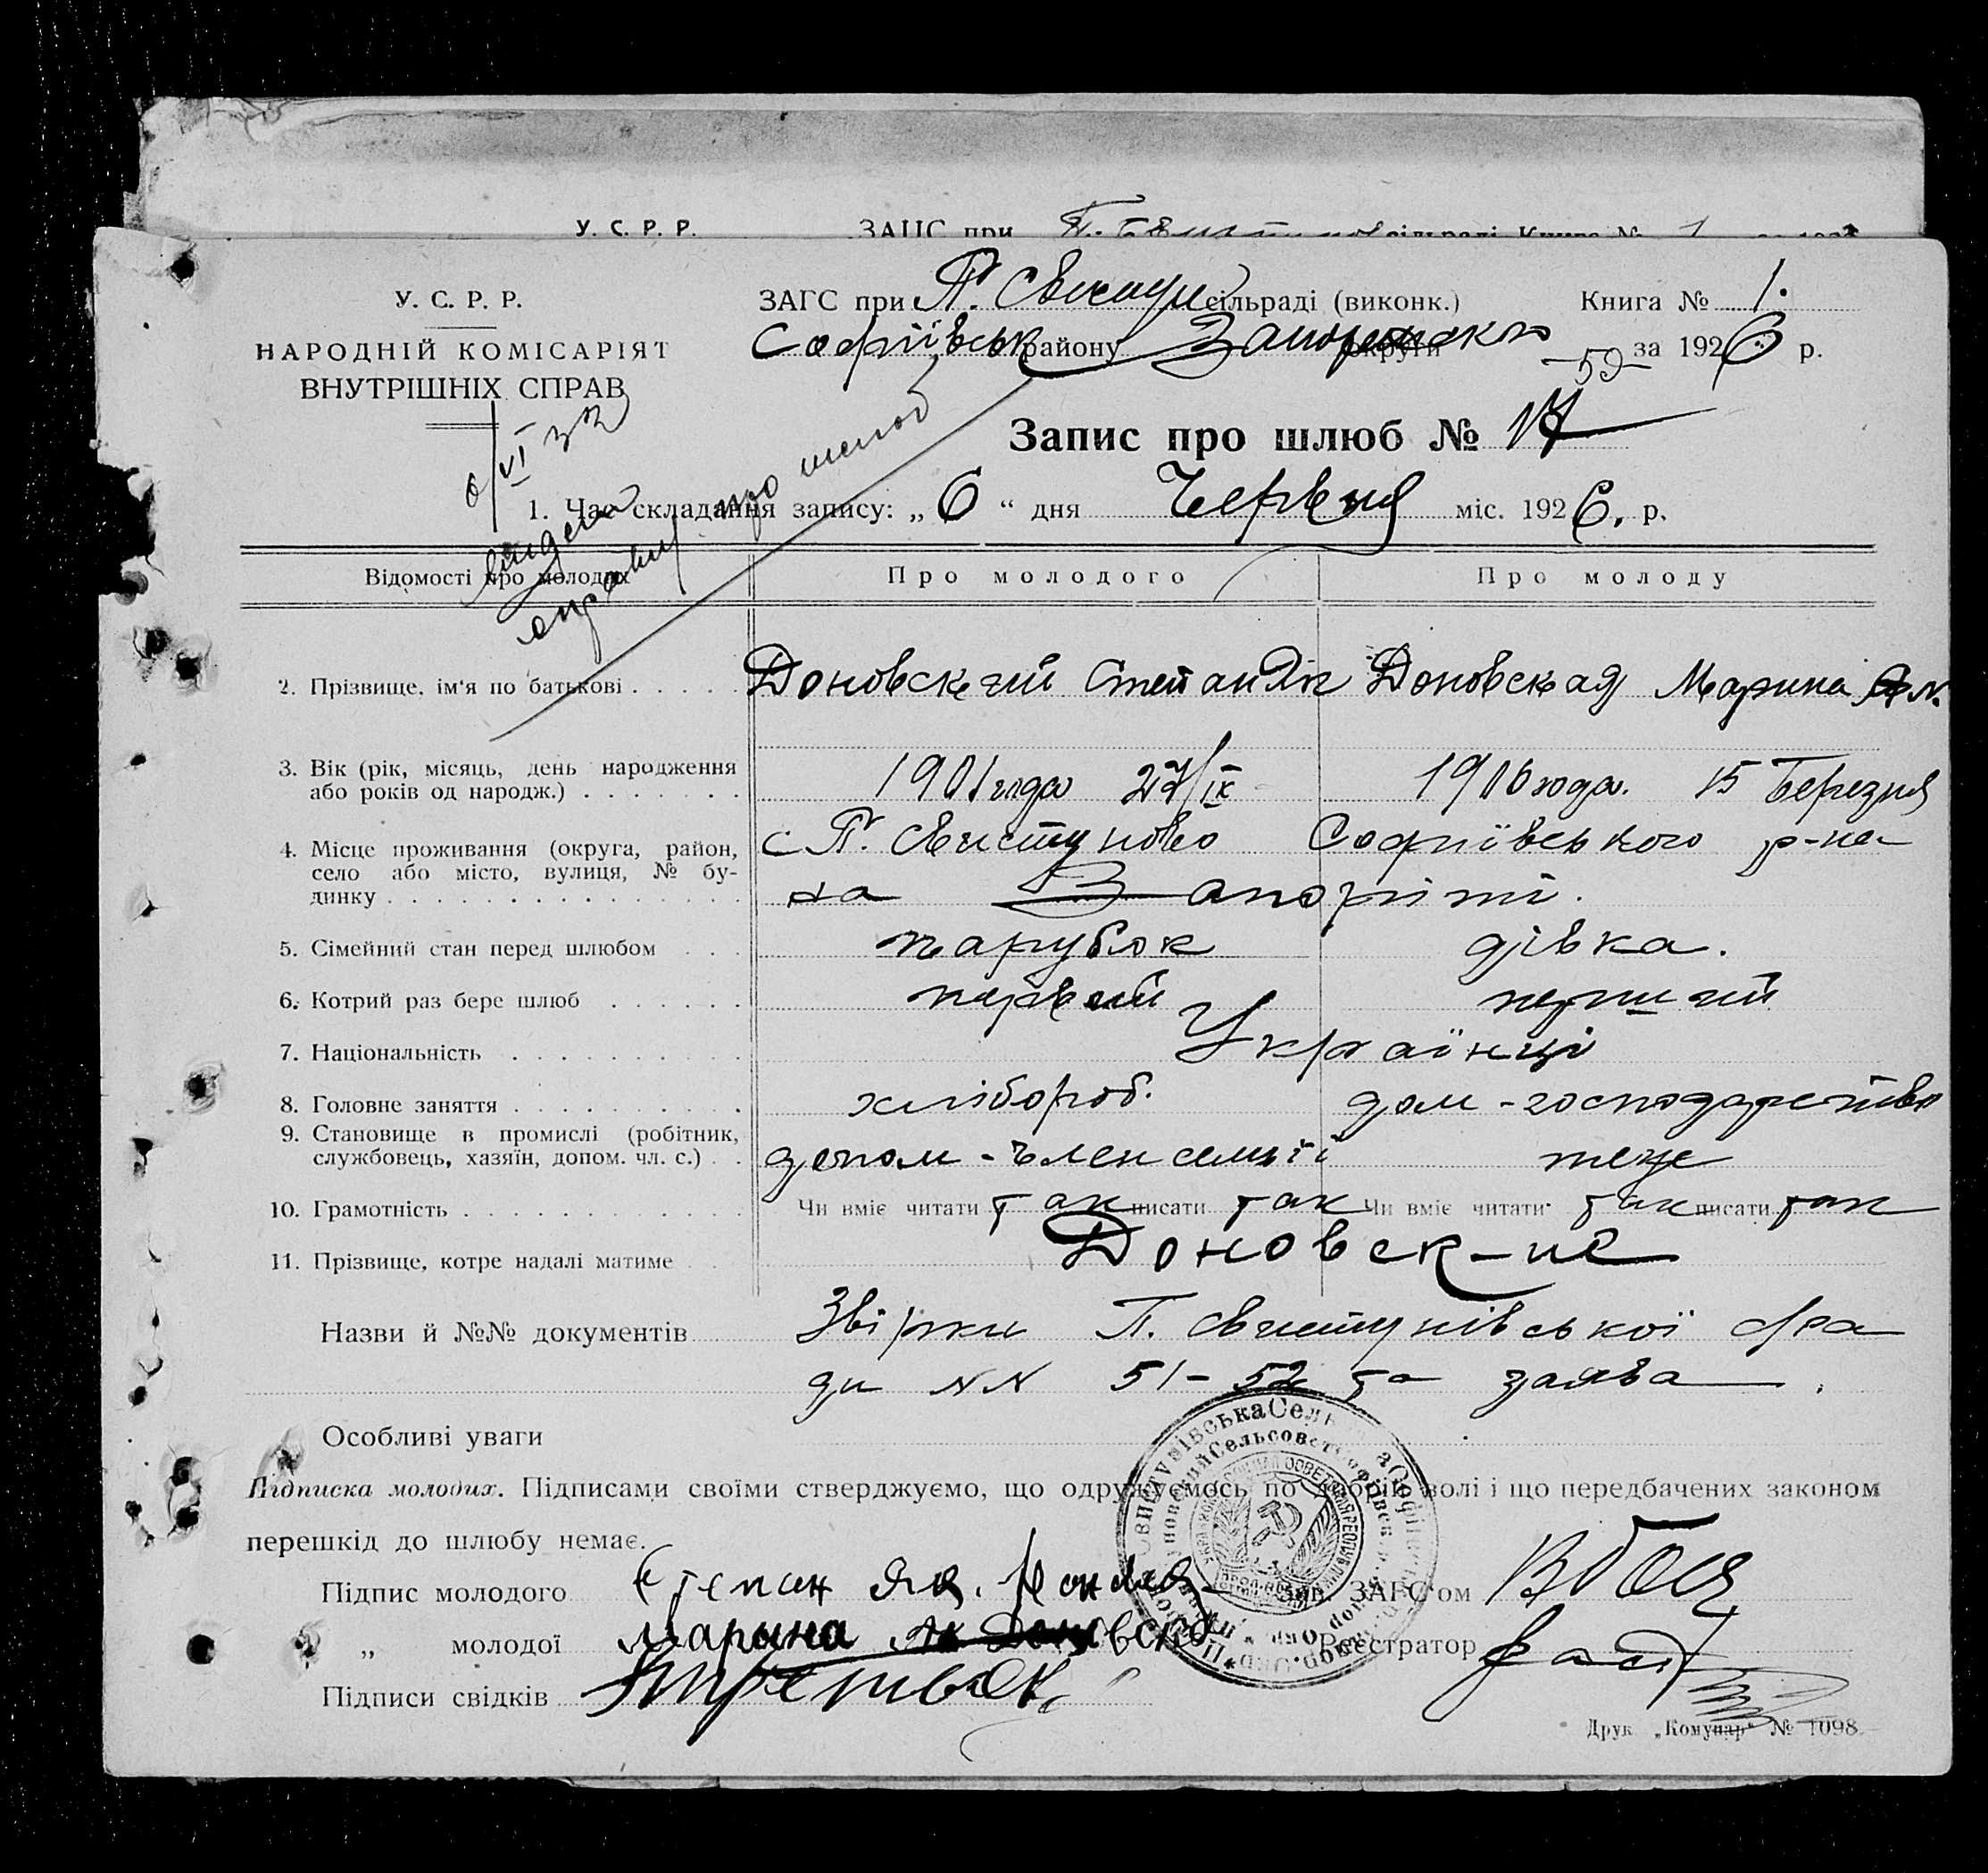 У. С. Р. Р. ЗАГС при сільраді Книга № 1
У. С. Р. Р.
НАРОДНІЙ КОМІСАРІЯТ
ВНУТРІШНІХ СПРАВ
ЗАГС при П. Свистун сільраді (виконк.) Книга № 1.
Софіївськ району округи за 1926 р.
-59-
Запис про шлюб № 17
1. Час складання запису: „6“ дня Червня міс. 1926. р.
про шлюб
Відомості про молодих Про молодого Про молоду
2. Прізвище, ім'я по батькові Доновский Степан Як Доновская Марина
3. Вік (рік, місяць, день народження
або років од народж.) 1901 года 27/IX 1906 года. 15 Березня
4. Місце проживання (округа, район,
село або місто, вулиця, № бу-
динку с П. Свистуново Софиївського р-на
на Запоріжі.
5. Сімейний стан перед шлюбом парубок дівка.
6. Котрий раз бере шлюб первий перший
7. Національність Українці
8. Головне заняття хлібороб. дом-господарство
9. Становище в промислі (робітник,
службовець, хазяїн, допом. чл. с.) допом-член семьїі теже
10. Грамотність Чи вміє читати так писати так Чи вміє читати так писати так
11. Прізвище, котре надалі матиме Доновск-ие
Назви й №№ документів Звірки П. Свистунівської сра
ди NN 51-52 та заява.
Особливі уваги
Підписка молодих. Підписами своїми стверджуємо, що одружуємось по добрій волі і що передбачених законом
перешкід до шлюбу немає.
Підпис молодого Степан Як. Зав. ЗАГС'ом
„ молодої Марина Реєстратор
Підписи свідків
Друк „Комунар“ № 1098